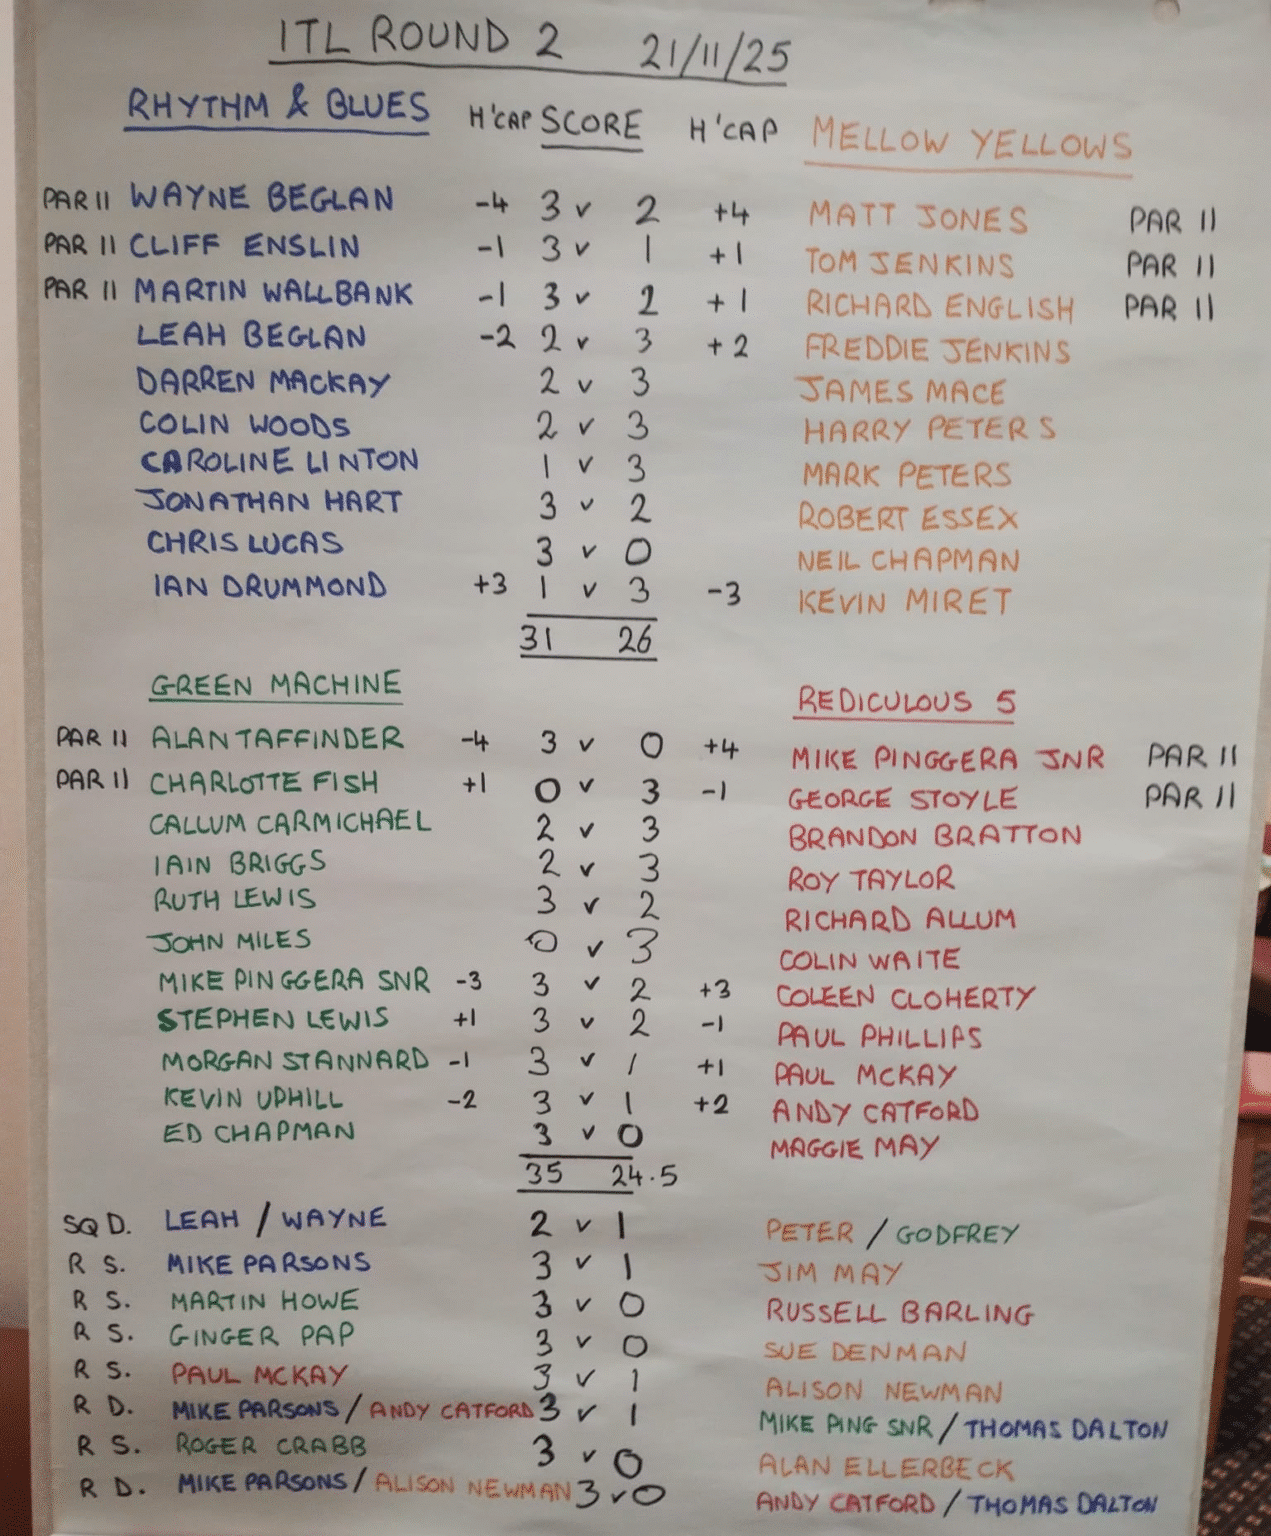 ITL ROUND 2 21/11/25
RHYTHM & BLUES H'CAP SCORE H'CAP MELLOW YELLOWS
PAR 11 WAYNE BEGLAN -4 3 v 2 +4 MATT JONES PAR 11
PAR 11 CLIFF ENSLIN -1 3 v 1 +1 TOM JENKINS PAR 11
PAR 11 MARTIN WALLBANK -1 3 v 2 +1 RICHARD ENGLISH PAR 11
LEAH BEGLAN -2 2 v 3 +2 FREDDIE JENKINS
DARREN MACKAY 2 v 3 JAMES MACE
COLIN WOODS 2 v 3 HARRY PETERS
CAROLINE LINTON 1 v 3 MARK PETERS
JONATHAN HART 3 v 2 ROBERT ESSEX
CHRIS LUCAS 3 v 0 NEIL CHAPMAN
IAN DRUMMOND +3 1 v 3 -3 KEVIN MIRET
31 26
GREEN MACHINE REDICULOUS 5
PAR 11 ALAN TAFFINDER -4 3 v 0 +4 MIKE PINGGERA JNR PAR 11
PAR 11 CHARLOTTE FISH +1 0 v 3 -1 GEORGE STOYLE PAR 11
CALLUM CARMICHAEL 2 v 3 BRANDON BRATTON
IAIN BRIGGS 2 v 3 ROY TAYLOR
RUTH LEWIS 3 v 2 RICHARD ALLUM
JOHN MILES 0 v 3 COLIN WAITE
MIKE PINGGERA SNR -3 3 v 2 +3 COLEEN CLOHERTY
STEPHEN LEWIS +1 3 v 2 -1 PAUL PHILLIPS
MORGAN STANNARD -1 3 v 1 +1 PAUL MCKAY
KEVIN UPHILL -2 3 v 1 +2 ANDY CATFORD
ED CHAPMAN 3 v 0 MAGGIE MAY
35 24.5
SQ D. LEAH / WAYNE 2 v 1 PETER / GODFREY
R S. MIKE PARSONS 3 v 1 JIM MAY
R S. MARTIN HOWE 3 v 0 RUSSELL BARLING
R S. GINGER PAP 3 v 0 SUE DENMAN
R S. PAUL MCKAY 3 v 1 ALISON NEWMAN
R D. MIKE PARSONS / ANDY CATFORD 3 v 1 MIKE PING SNR / THOMAS DALTON
R S. ROGER CRABB 3 v 0 ALAN ELLERBECK
R D. MIKE PARSONS / ALISON NEWMAN 3 v 0 ANDY CATFORD / THOMAS DALTON